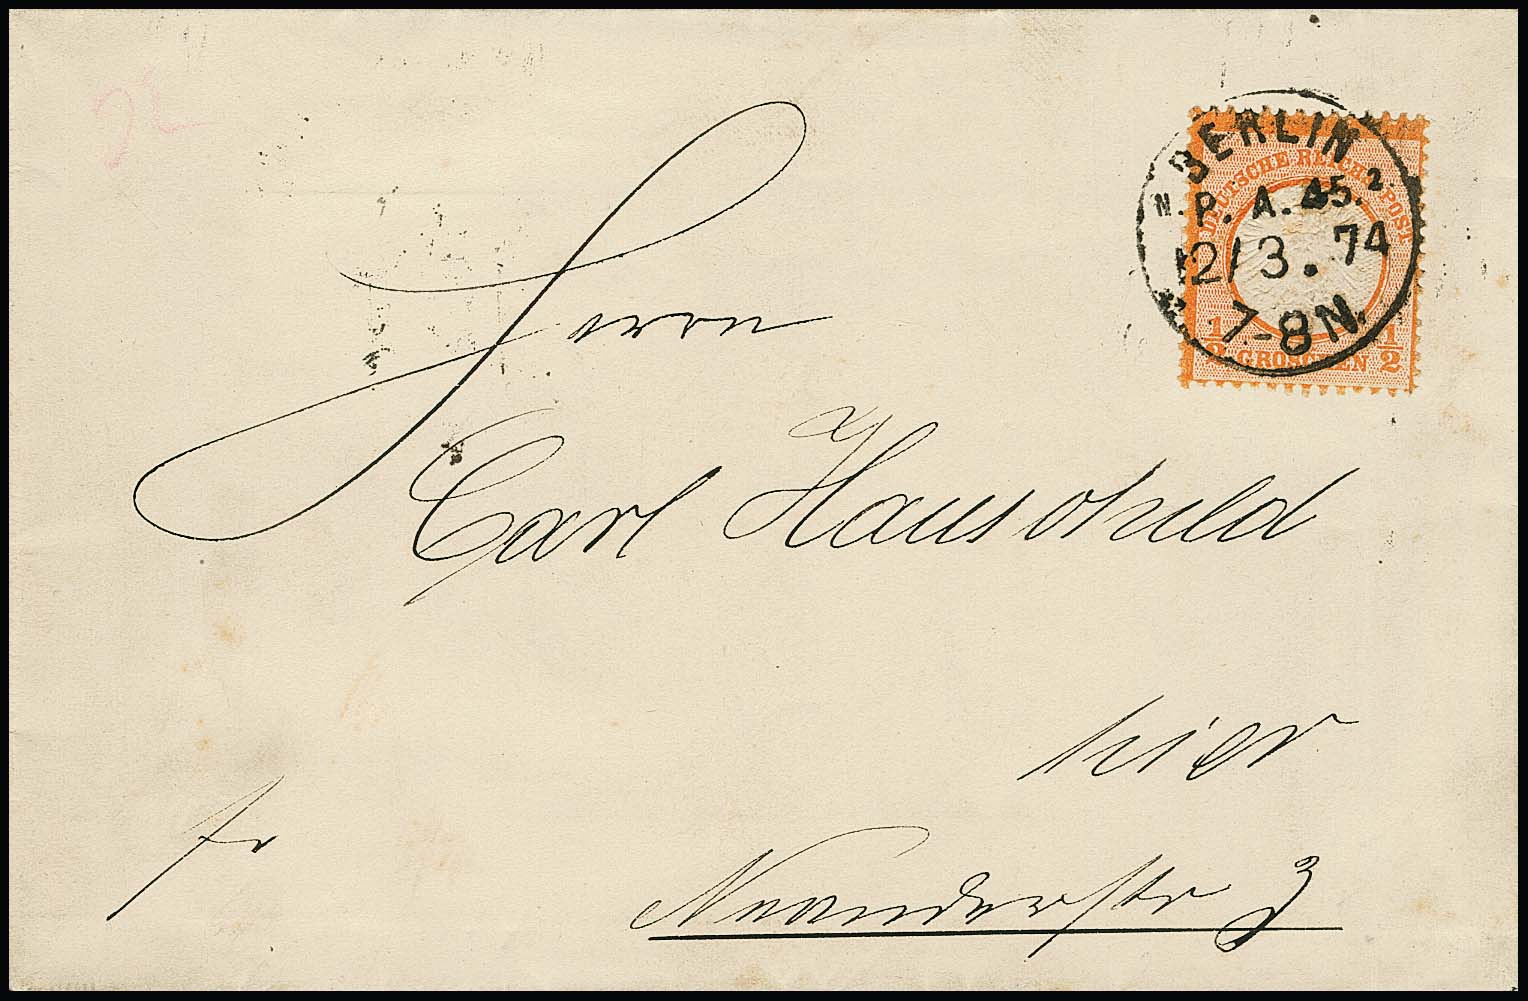 BERLIN
N. P. A. 45. 2.
12/3. 74
7-8N.
DEUTSCHE REICHS-POST
1/2 GROSCHEN 1/2
Herrn
Carl Hauschild
hier
fr
Neanderstr 3